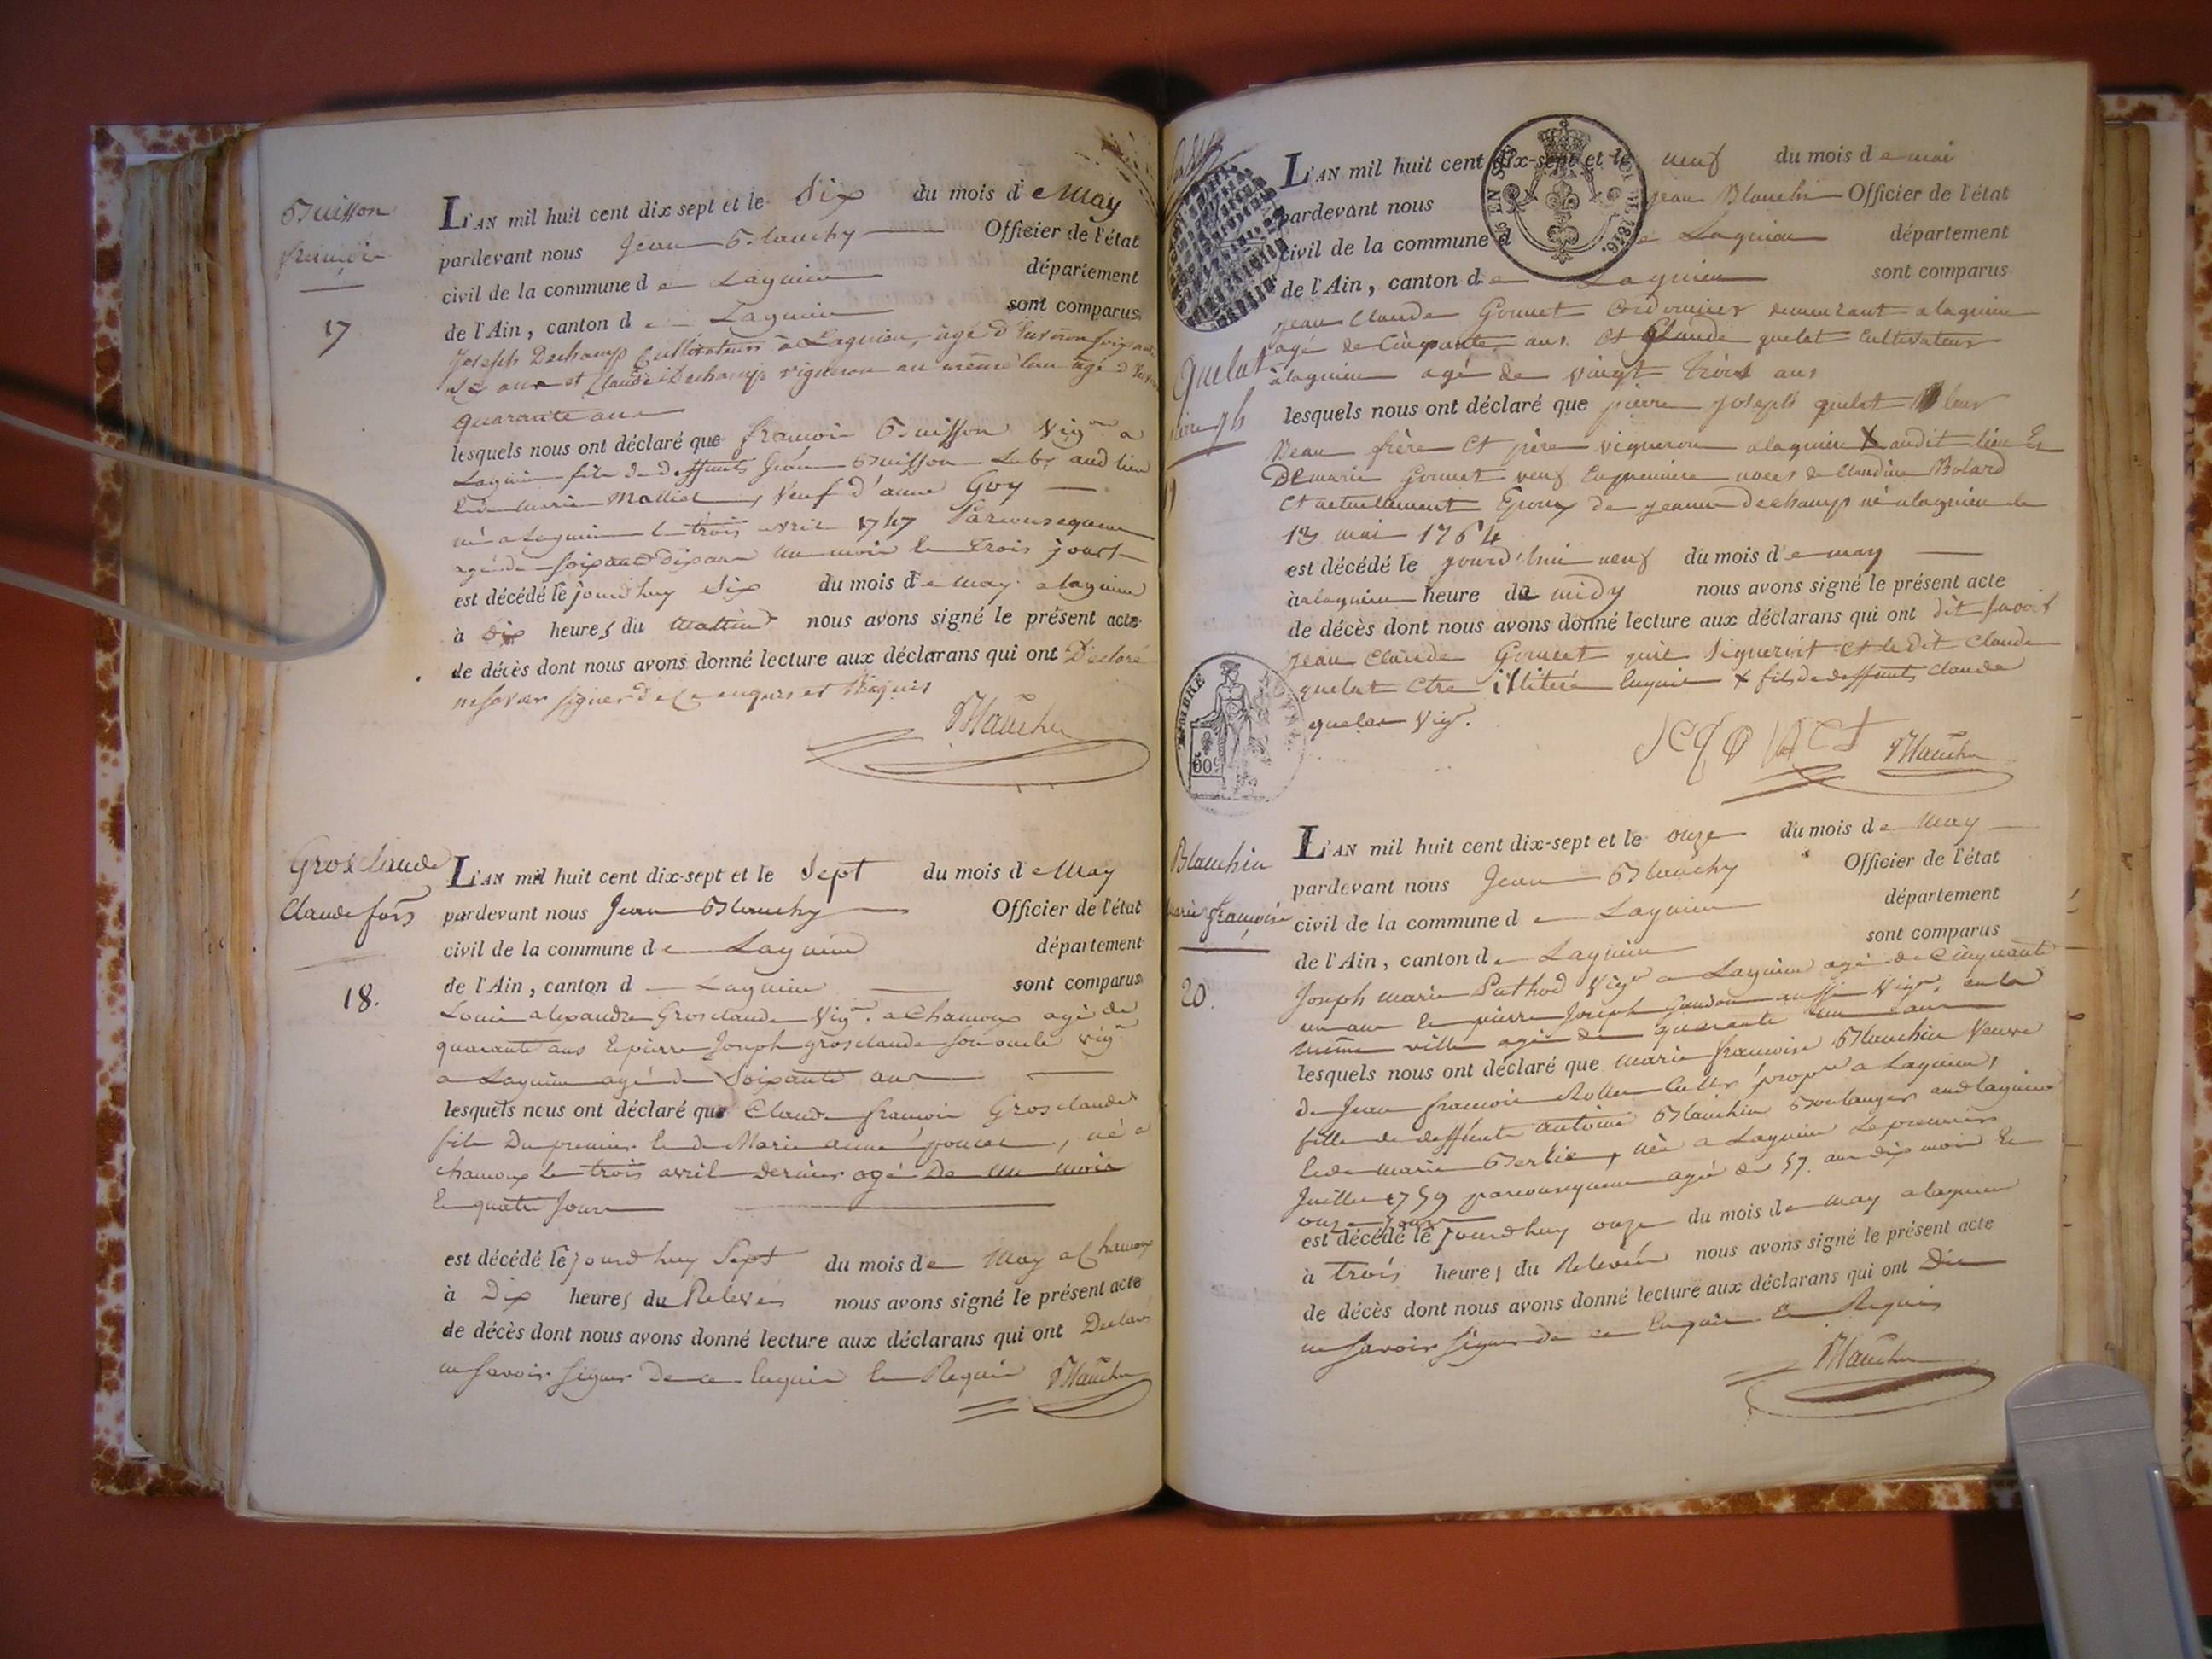 Buisson
françois
17
L'AN mil huit cent dix sept et le Six du mois de May
pardevant nous Jean Blanchy Officier de l'état
civil de la commune de Lagnieu département
de l'Ain, canton de Lagnieu sont comparus
Joseph Dechamp Cultivateur à Lagnieu, agé d'Environ soixante
ans et Claude Dechamp vigneron au même lieu agé d'
quarante ans
lesquels nous ont déclaré que françois Buisson Vign a
Lagnieu fils de deffunts Jean Buisson aud lieu
Et de Marie Mallict, Veuf d'anne Goy
né a Lagnieu le trois avril 1747 Parconsequent
agé de soixante dix ans un mois Et trois jours
est décédé le jourd'huy Six du mois de May a lagnieu
à dix heures du mattin nous avons signé le présent acte
de décès dont nous avons donné lecture aux déclarans qui ont Declaré
ne savoir signer de ce enquis et Requis
Blanchy
Grosclaude
Claude fois
18.
L'AN mil huit cent dix-sept et le Sept du mois de May
pardevant nous Jean Blanchy Officier de l'état
civil de la commune de Lagnieu département
de l'Ain, canton d Lagnieu sont comparus
Louis alexandre Grosclaude Vign. a Chamoux agé de
quarante ans Et pierre Joseph grosclaude son oncle vign
a Lagnieu agé de Soixante ans
lesquels nous ont déclaré que Claude françois Grosclaude
fils Du premier Et de Marie anne poncet, né a
chamoux le trois avril dernier agé De un mois
Et quatre Jours
est décédé le jourd'huy Sept du mois de May a Chamoux
à Dix heures du Relevée nous avons signé le présent acte
de décès dont nous avons donné lecture aux déclarans qui ont Declaré
ne savoir signer De ce Enquis Et Requis Blanchy
Quelat
pierre jh
L'AN mil huit cent dix-sept et le neuf du mois de mai
pardevant nous Jean Blanchi Officier de l'état
civil de la commune de Lagnieu département
de l'Ain, canton de Lagnieu sont comparus
jean Claude Gonnet Cordonnier demeurant a lagnieu
agé de Cinquante ans Et Claude quelat Cultivateur
à lagnieu agé de vaingt trois ans
lesquels nous ont déclaré que pierre joseph quelat leur
beau frère Et père vigneron a lagnieu X audit lieu Et
De marie Gonnet veuf En premiere noces de Claudine Bolard
Et actuellement Epoux de jeanne dechamp né a lagnieu le
13 mai 1764
est décédé le jourd'hui neuf du mois de may
à a lagnieu heure de midy nous avons signé le présent acte
de décès dont nous avons donné lecture aux déclarans qui ont dit savoir
jean Claude Gonnet quil signeroit Et le dit Claude
quelat Etre illitéré Enquis X fils de deffunts Claude
quelat Vign.
Blanchy
TIMBRE ROYAL
50c
EN SUS
1816.
Blanchin
marie françoise
20.
L'AN mil huit cent dix-sept et le onze du mois de May
pardevant nous Jean Blanchy Officier de l'état
civil de la commune de Lagnieu département
de l'Ain, canton de Lagnieu sont comparus
Joseph marie Pathod Vign a Lagnieu agé de Cinquante
un ans Et pierre Joseph aussi Vign, en la
même ville agé de quarante un ans
lesquels nous ont déclaré que marie françoise Blanchin Veuve
de Jean françois Rollin propre a Lagnieu,
fille de deffunts antoine Blanchin Boulanger aud lagnieu
Et de marie Berlie, née a Lagnieu Le premier
Juillet 1759 parconsequent agée de 57. ans dix mois Et
onze jours
est décédé le jourd'huy onze du mois de may a lagnieu
à trois heures du Relevée nous avons signé le présent acte
de décès dont nous avons donné lecture aux déclarans qui ont Dit
ne savoir signer de ce Enquis Et Requis
Blanchy